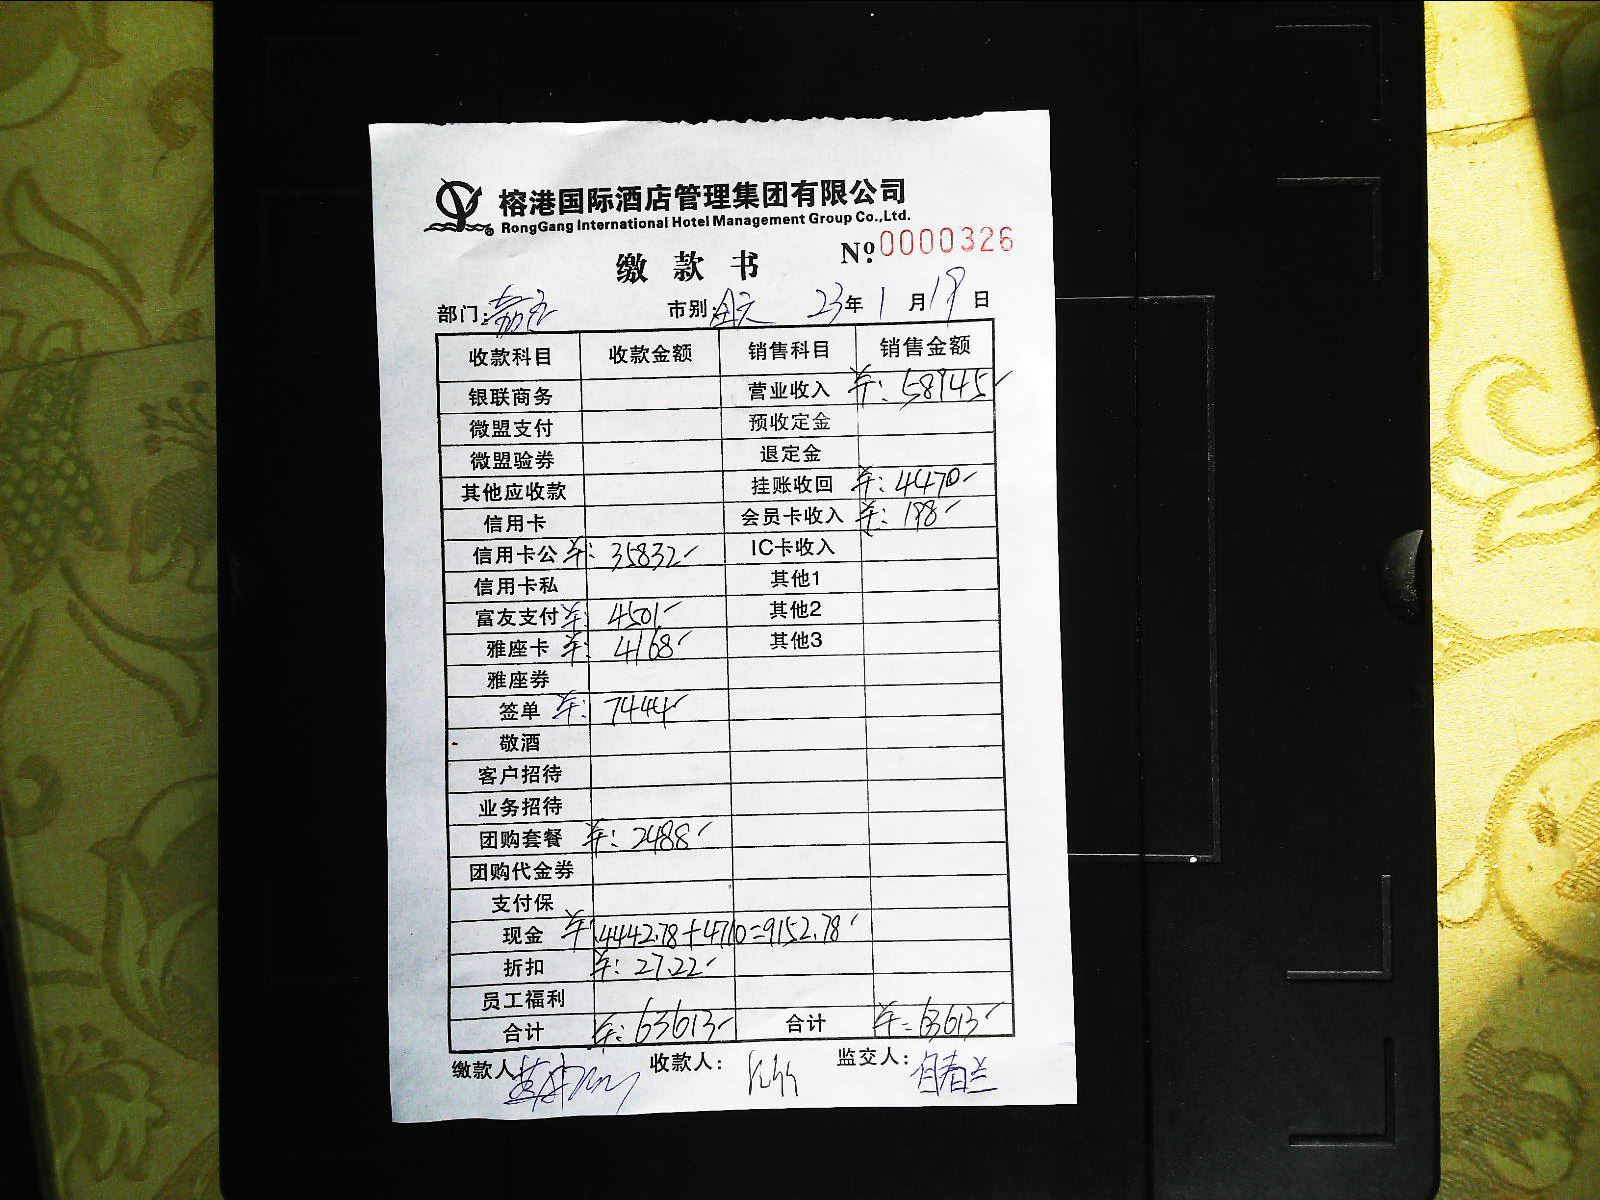 榕港国际酒店管理集团有限公司
RongGang International Hotel Management Group Co.,Ltd.
缴款书 Nº:0000326
部门: 市别:全天 23年1月19日
收款科目 收款金额 销售科目 销售金额
银联商务 营业收入 ¥:58945
微盟支付 预收定金
微盟验券 退定金
其他应收款 挂账收回 ¥:4470
信用卡 会员卡收入 ¥:198
信用卡公 ¥:35832 IC卡收入
信用卡私 其他1
富友支付 ¥:4501 其他2
雅座卡 ¥:4168 其他3
雅座券
签单 ¥:7444
敬酒
客户招待
业务招待
团购套餐 ¥:2488
团购代金券
支付保
现金 ¥:4442.78+4710=9152.78
折扣 ¥:27.22
员工福利
合计 ¥:63613 合计 ¥:63613
缴款人: 收款人: 监交人: